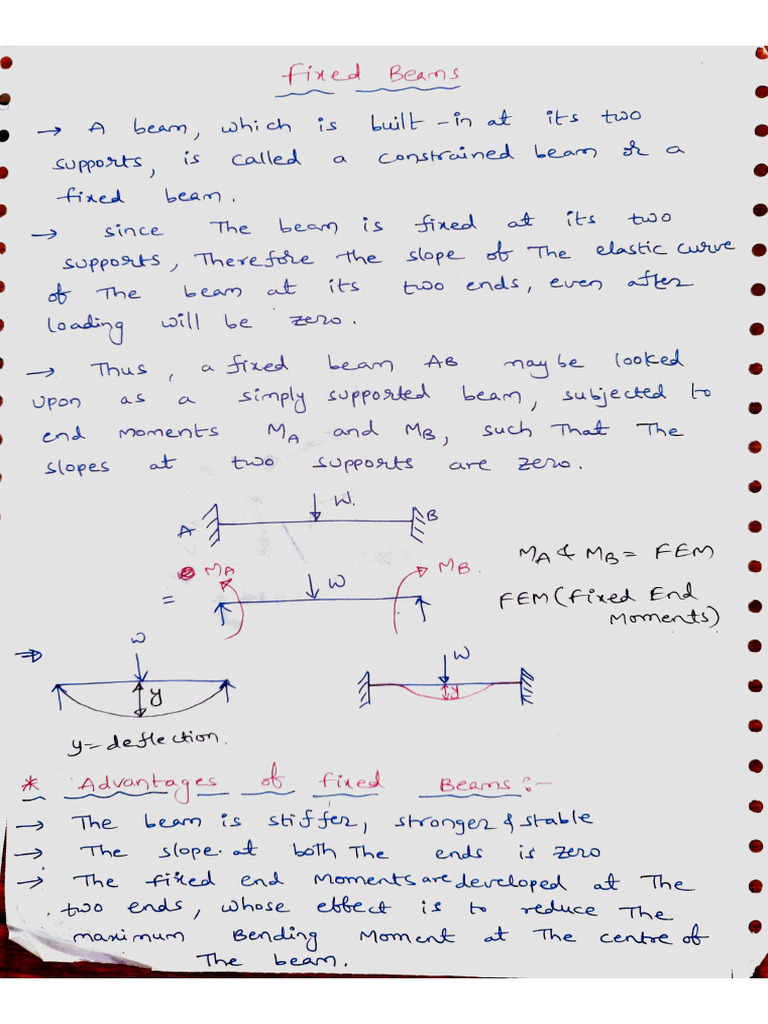 Fixed Beams
→ A beam, which is built-in at its two
supports, is called a constrained beam or a
fixed beam.
→ since The beam is fixed at its two
supports, Therefore the slope of The elastic curve
of The beam at its two ends, even after
loading will be zero.
→ Thus, a fixed beam AB may be looked
upon as a simply supported beam, subjected to
end moments M_A and M_B, such That The
slopes at two supports are zero.
W.
A
B
M_A & M_B = FEM
M_A
W
M_B.
=
FEM (Fixed End
Moments)
⇒
W
W
y
y
y = deflection.
* Advantages of fixed Beams:-
→ The beam is stiffer, stronger & stable
→ The slope at both The ends is zero
→ The fixed end Moments are developed at The
two ends, whose effect is to reduce The
maximum Bending Moment at The centre of
The beam.